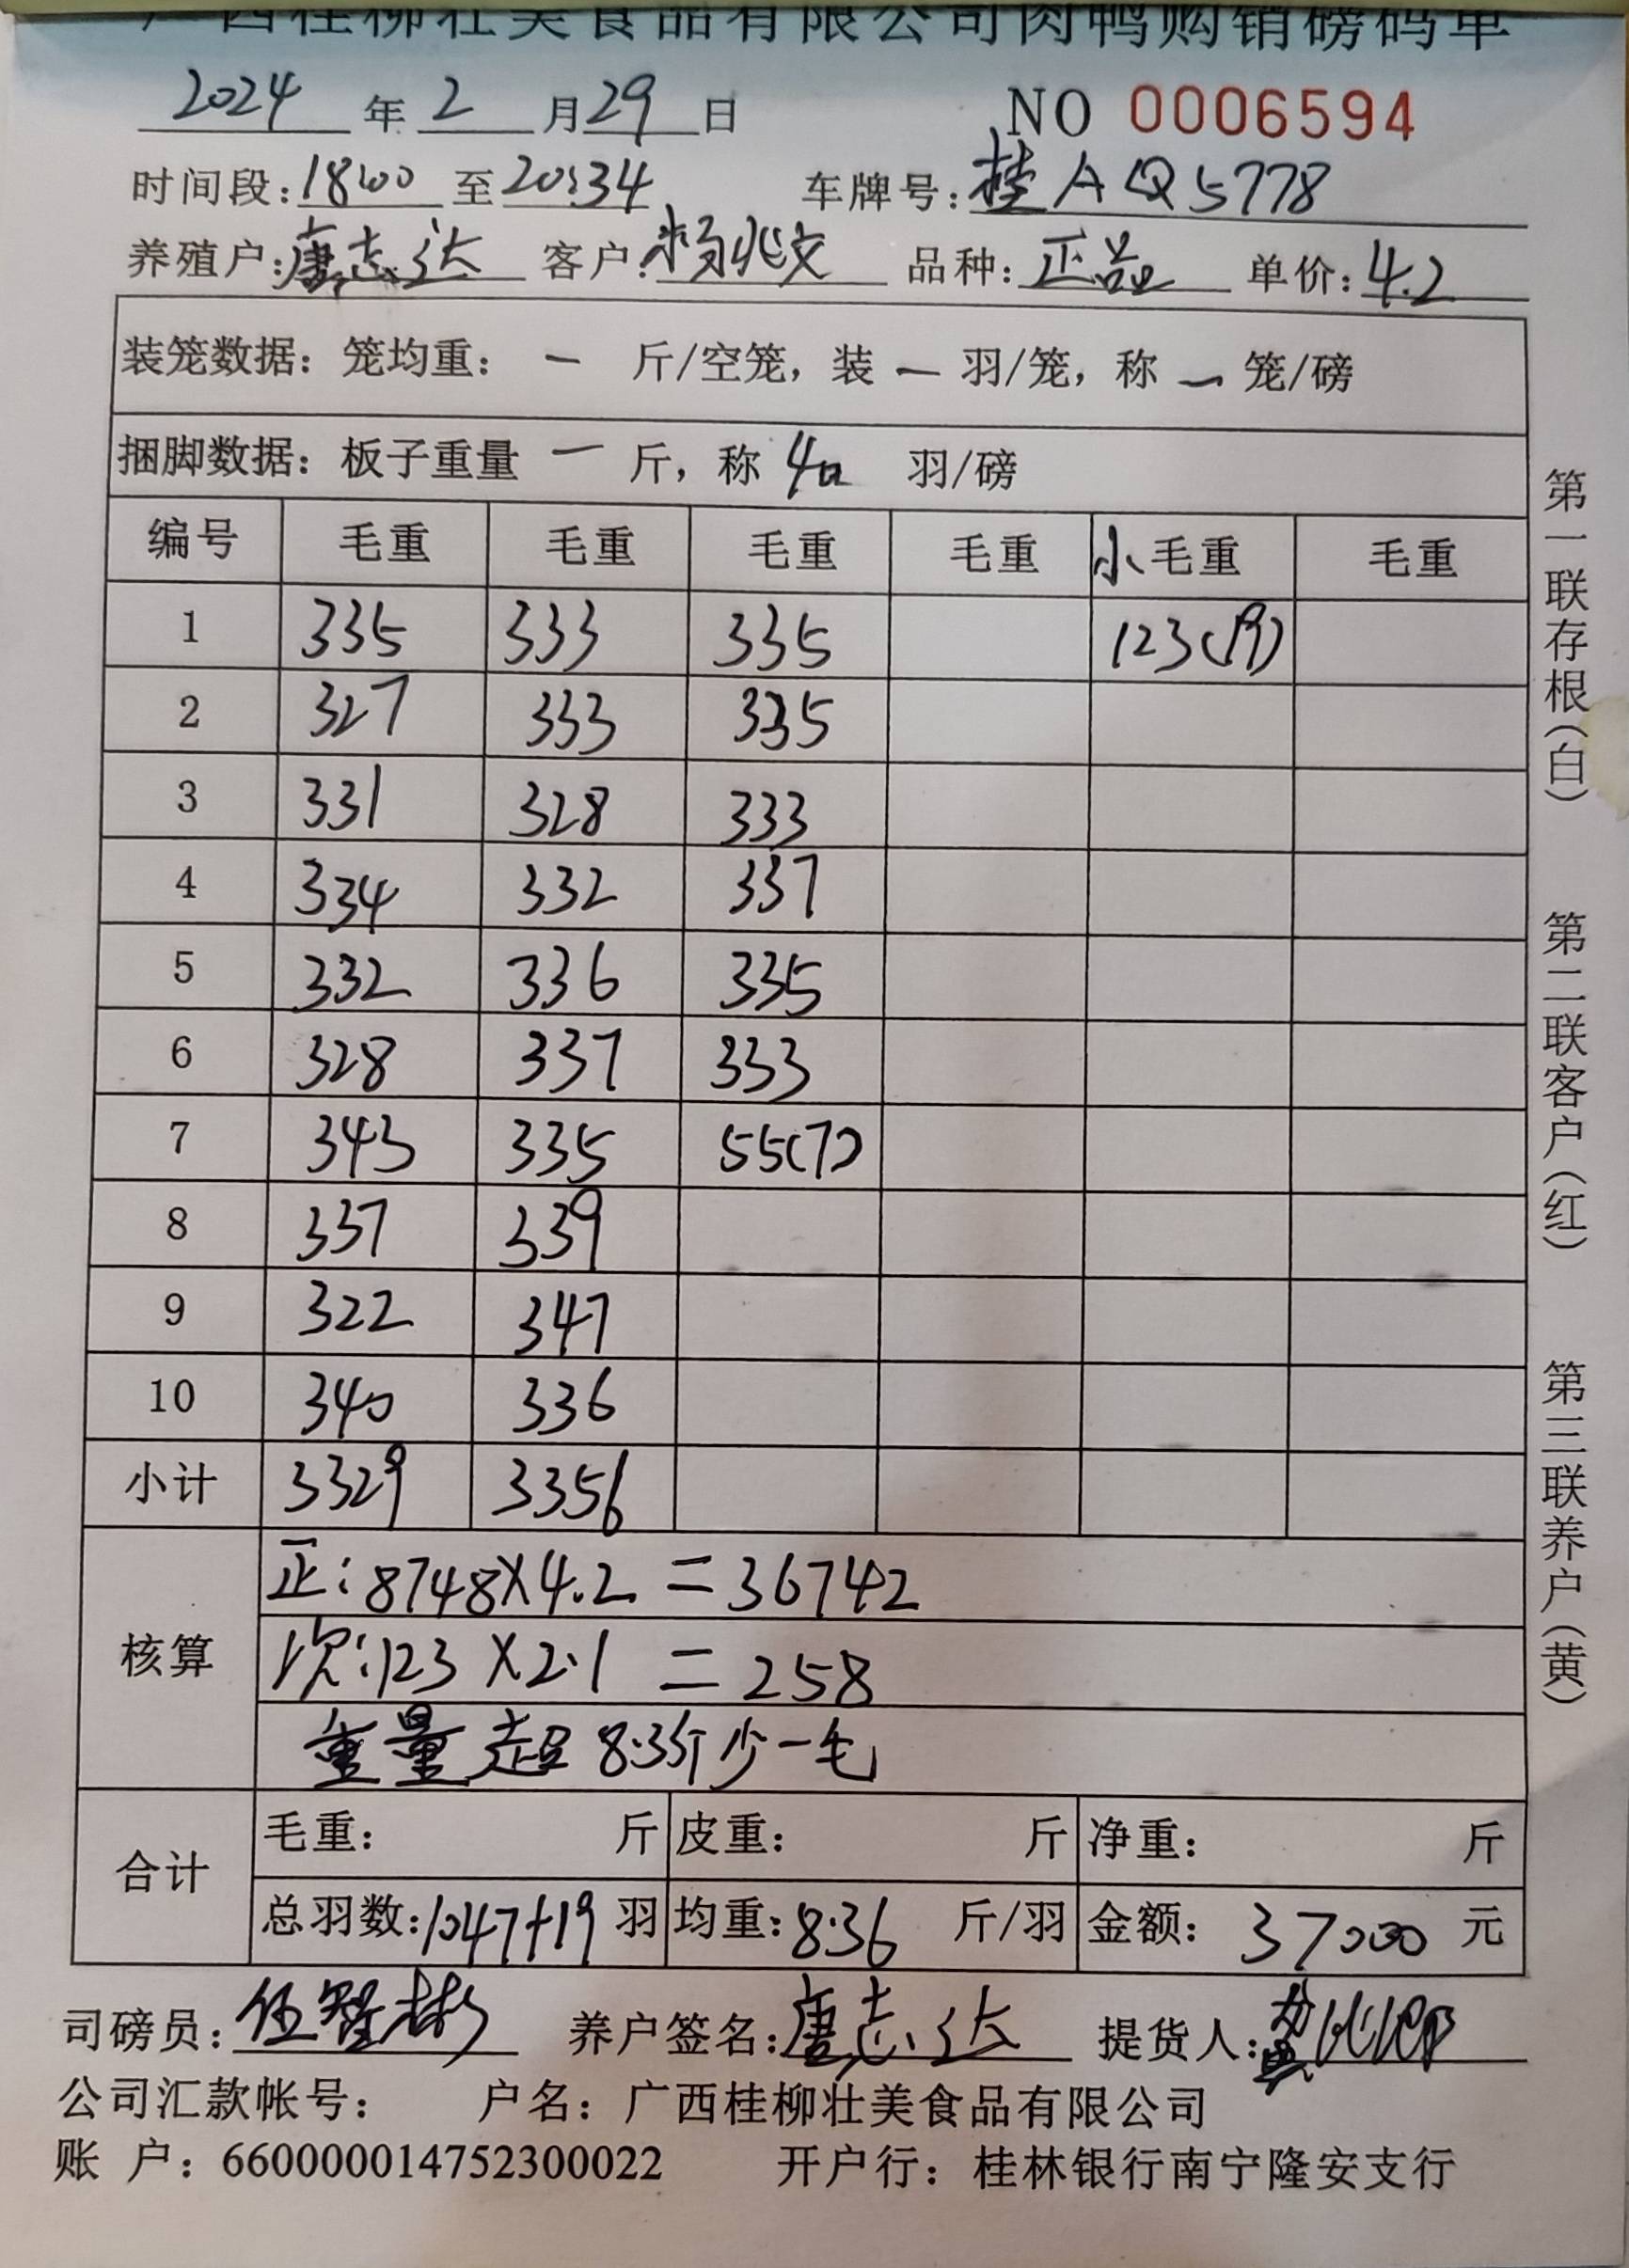 广西桂柳壮美食品有限公司肉鸭购销磅码单
2024 年 2 月 29 日 NO 0006594
时间段: 18:00 至 20:34 车牌号: 桂AQ5778
养殖户: 唐志达 客户: 杨兆文 品种: 正品 单价: 4.2
装笼数据: 笼均重: — 斤/空笼, 装 — 羽/笼, 称 — 笼/磅
捆脚数据: 板子重量 — 斤, 称 40 羽/磅
编号 毛重 毛重 毛重 毛重 小毛重 毛重
1 335 333 335 123(19)
2 327 333 335
3 331 328 333
4 334 332 337
5 332 336 335
6 328 337 333
7 343 335 55(7)
8 337 339
9 322 347
10 340 336
小计 3329 3356
核算
正: 8748×4.2 = 36742
次: 123 ×2.1 = 258
重量超 8.3斤少一毛
合计
毛重: 斤 皮重: 斤 净重: 斤
总羽数: 1047+19 羽 均重: 8.36 斤/羽 金额: 37000 元
司磅员: 伍 彬 养户签名: 唐志达 提货人:
公司汇款帐号: 户名: 广西桂柳壮美食品有限公司
账 户: 660000014752300022 开户行: 桂林银行南宁隆安支行
第一联存根(白) 第二联客户(红) 第三联养户(黄)